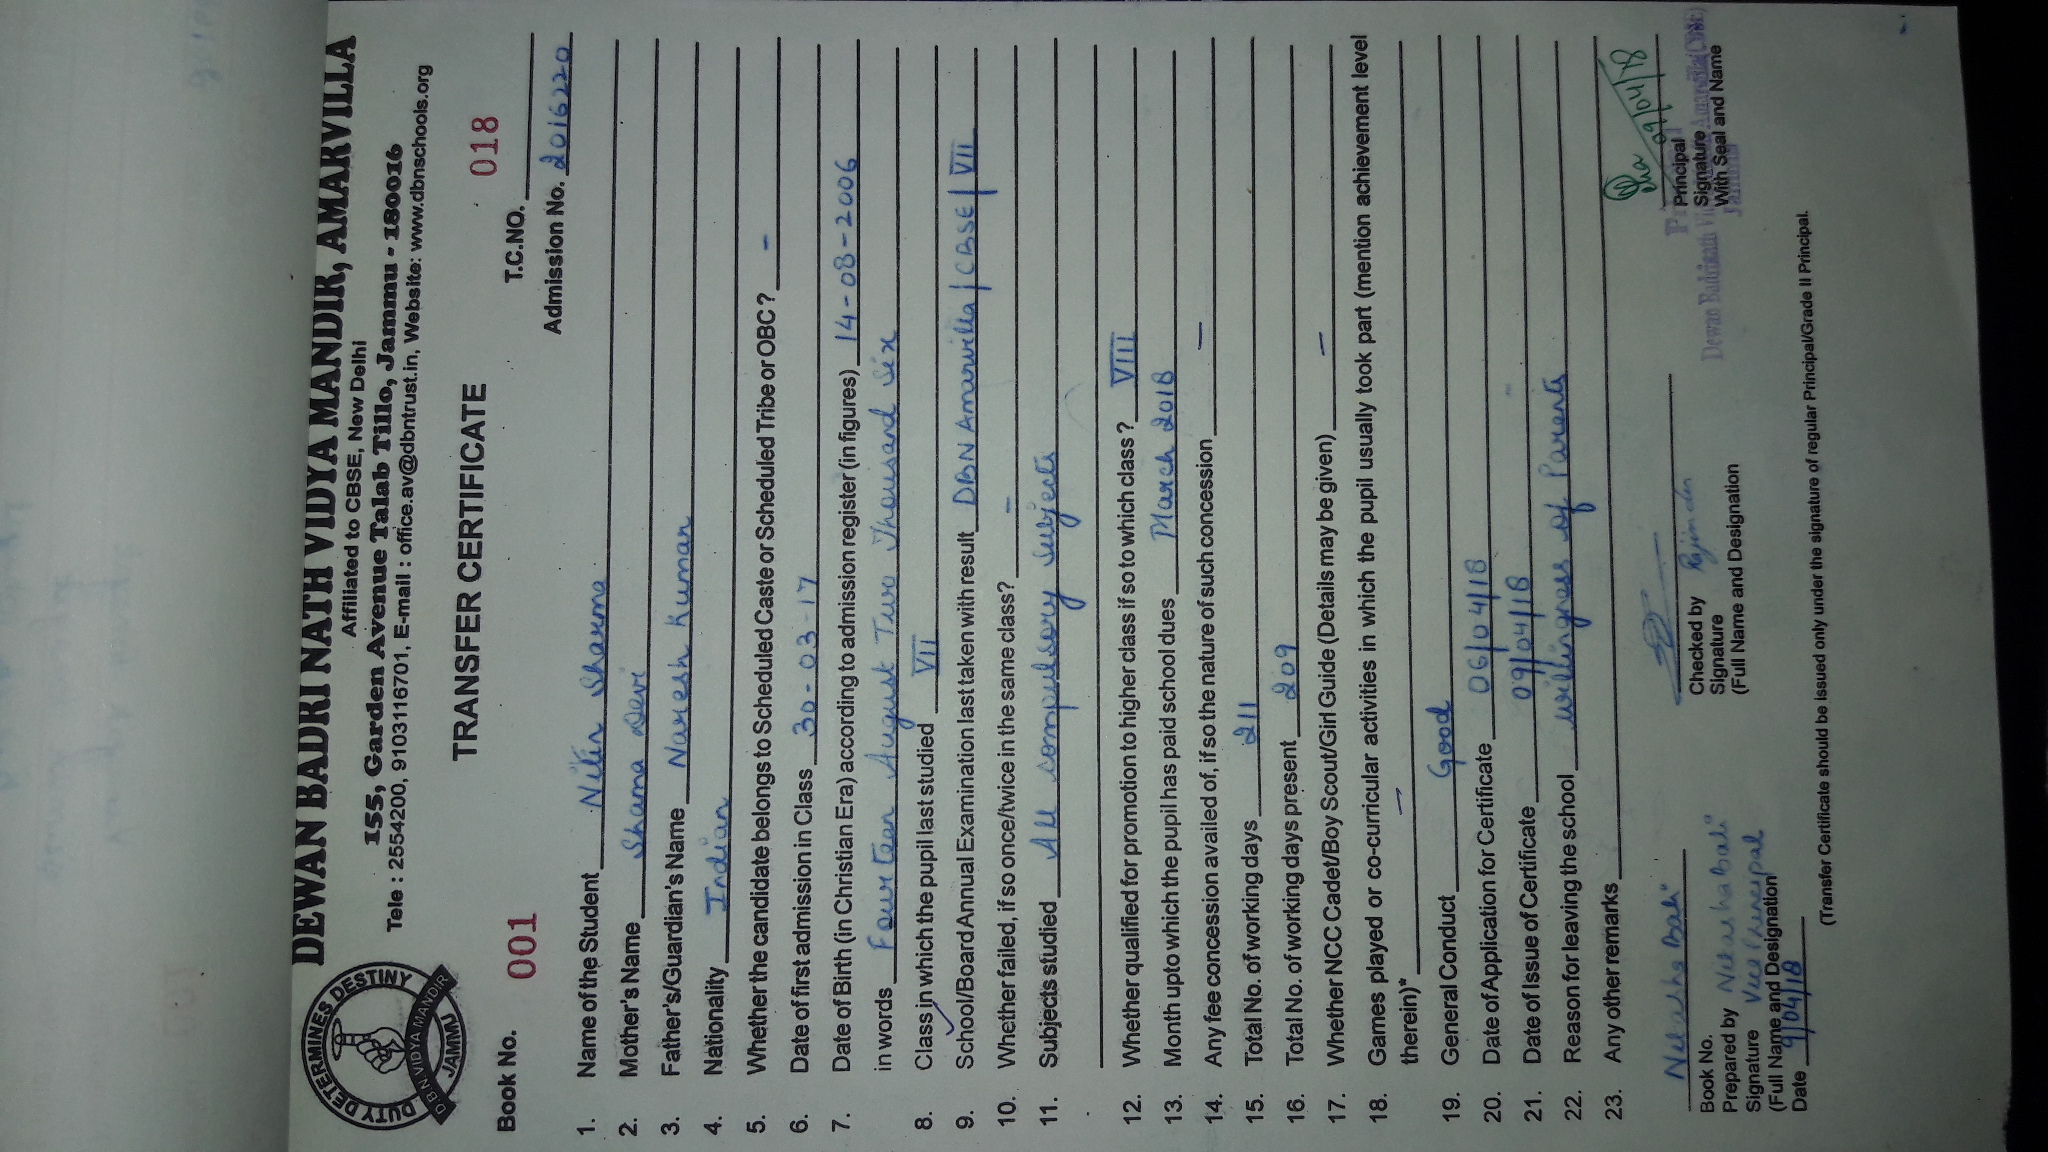 DEWAN BADRI NATH VIDYA MANDIR, AMARVILLA
Affiliated to CBSE, New Delhi
155, Garden Avenue Talab Tillo, Jammu - 180016
Tele : 2554200, 9103116701, E-mail : office.av@dbntrust.in, Website: www.dbnschools.org
DUTY DETERMINES DESTINY
D.B.N. VIDYA MANDIR
JAMMU
TRANSFER CERTIFICATE
Book No. 001 T.C.NO. 018
Admission No. 2016220
1. Name of the Student Nitin Sharma
2. Mother's Name Shama Devi
3. Father's/Guardian's Name Naresh Kumar
4. Nationality Indian
5. Whether the candidate belongs to Scheduled Caste or Scheduled Tribe or OBC ? -
6. Date of first admission in Class 30-03-17
7. Date of Birth (in Christian Era) according to admission register (in figures) 14-08-2006
in words Fourteen August Two Thousand Six
8. Class in which the pupil last studied VII
9. School/Board Annual Examination last taken with result DBN Amarvilla / CBSE / VII
10. Whether failed, if so once/twice in the same class? -
11. Subjects studied All compulsory subjects
12. Whether qualified for promotion to higher class if so to which class ? VIII
13. Month upto which the pupil has paid school dues March 2018
14. Any fee concession availed of, if so the nature of such concession -
15. Total No. of working days 211
16. Total No. of working days present 209
17. Whether NCC Cadet/Boy Scout/Girl Guide (Details may be given) -
18. Games played or co-curricular activities in which the pupil usually took part (mention achievement level
therein)* -
19. General Conduct Good
20. Date of Application for Certificate 06/04/18
21. Date of Issue of Certificate 09/04/18
22. Reason for leaving the school willingness of Parents
23. Any other remarks
09/04/18
Book No.
Prepared by
Signature Vice Principal
(Full Name and Designation)
Date 9/04/18
Checked by Rajinder
Signature
(Full Name and Designation
Principal
Signature
With Seal and Name
Dewan Badrinath
(Transfer Certificate should be issued only under the signature of regular Principal/Grade II Principal.